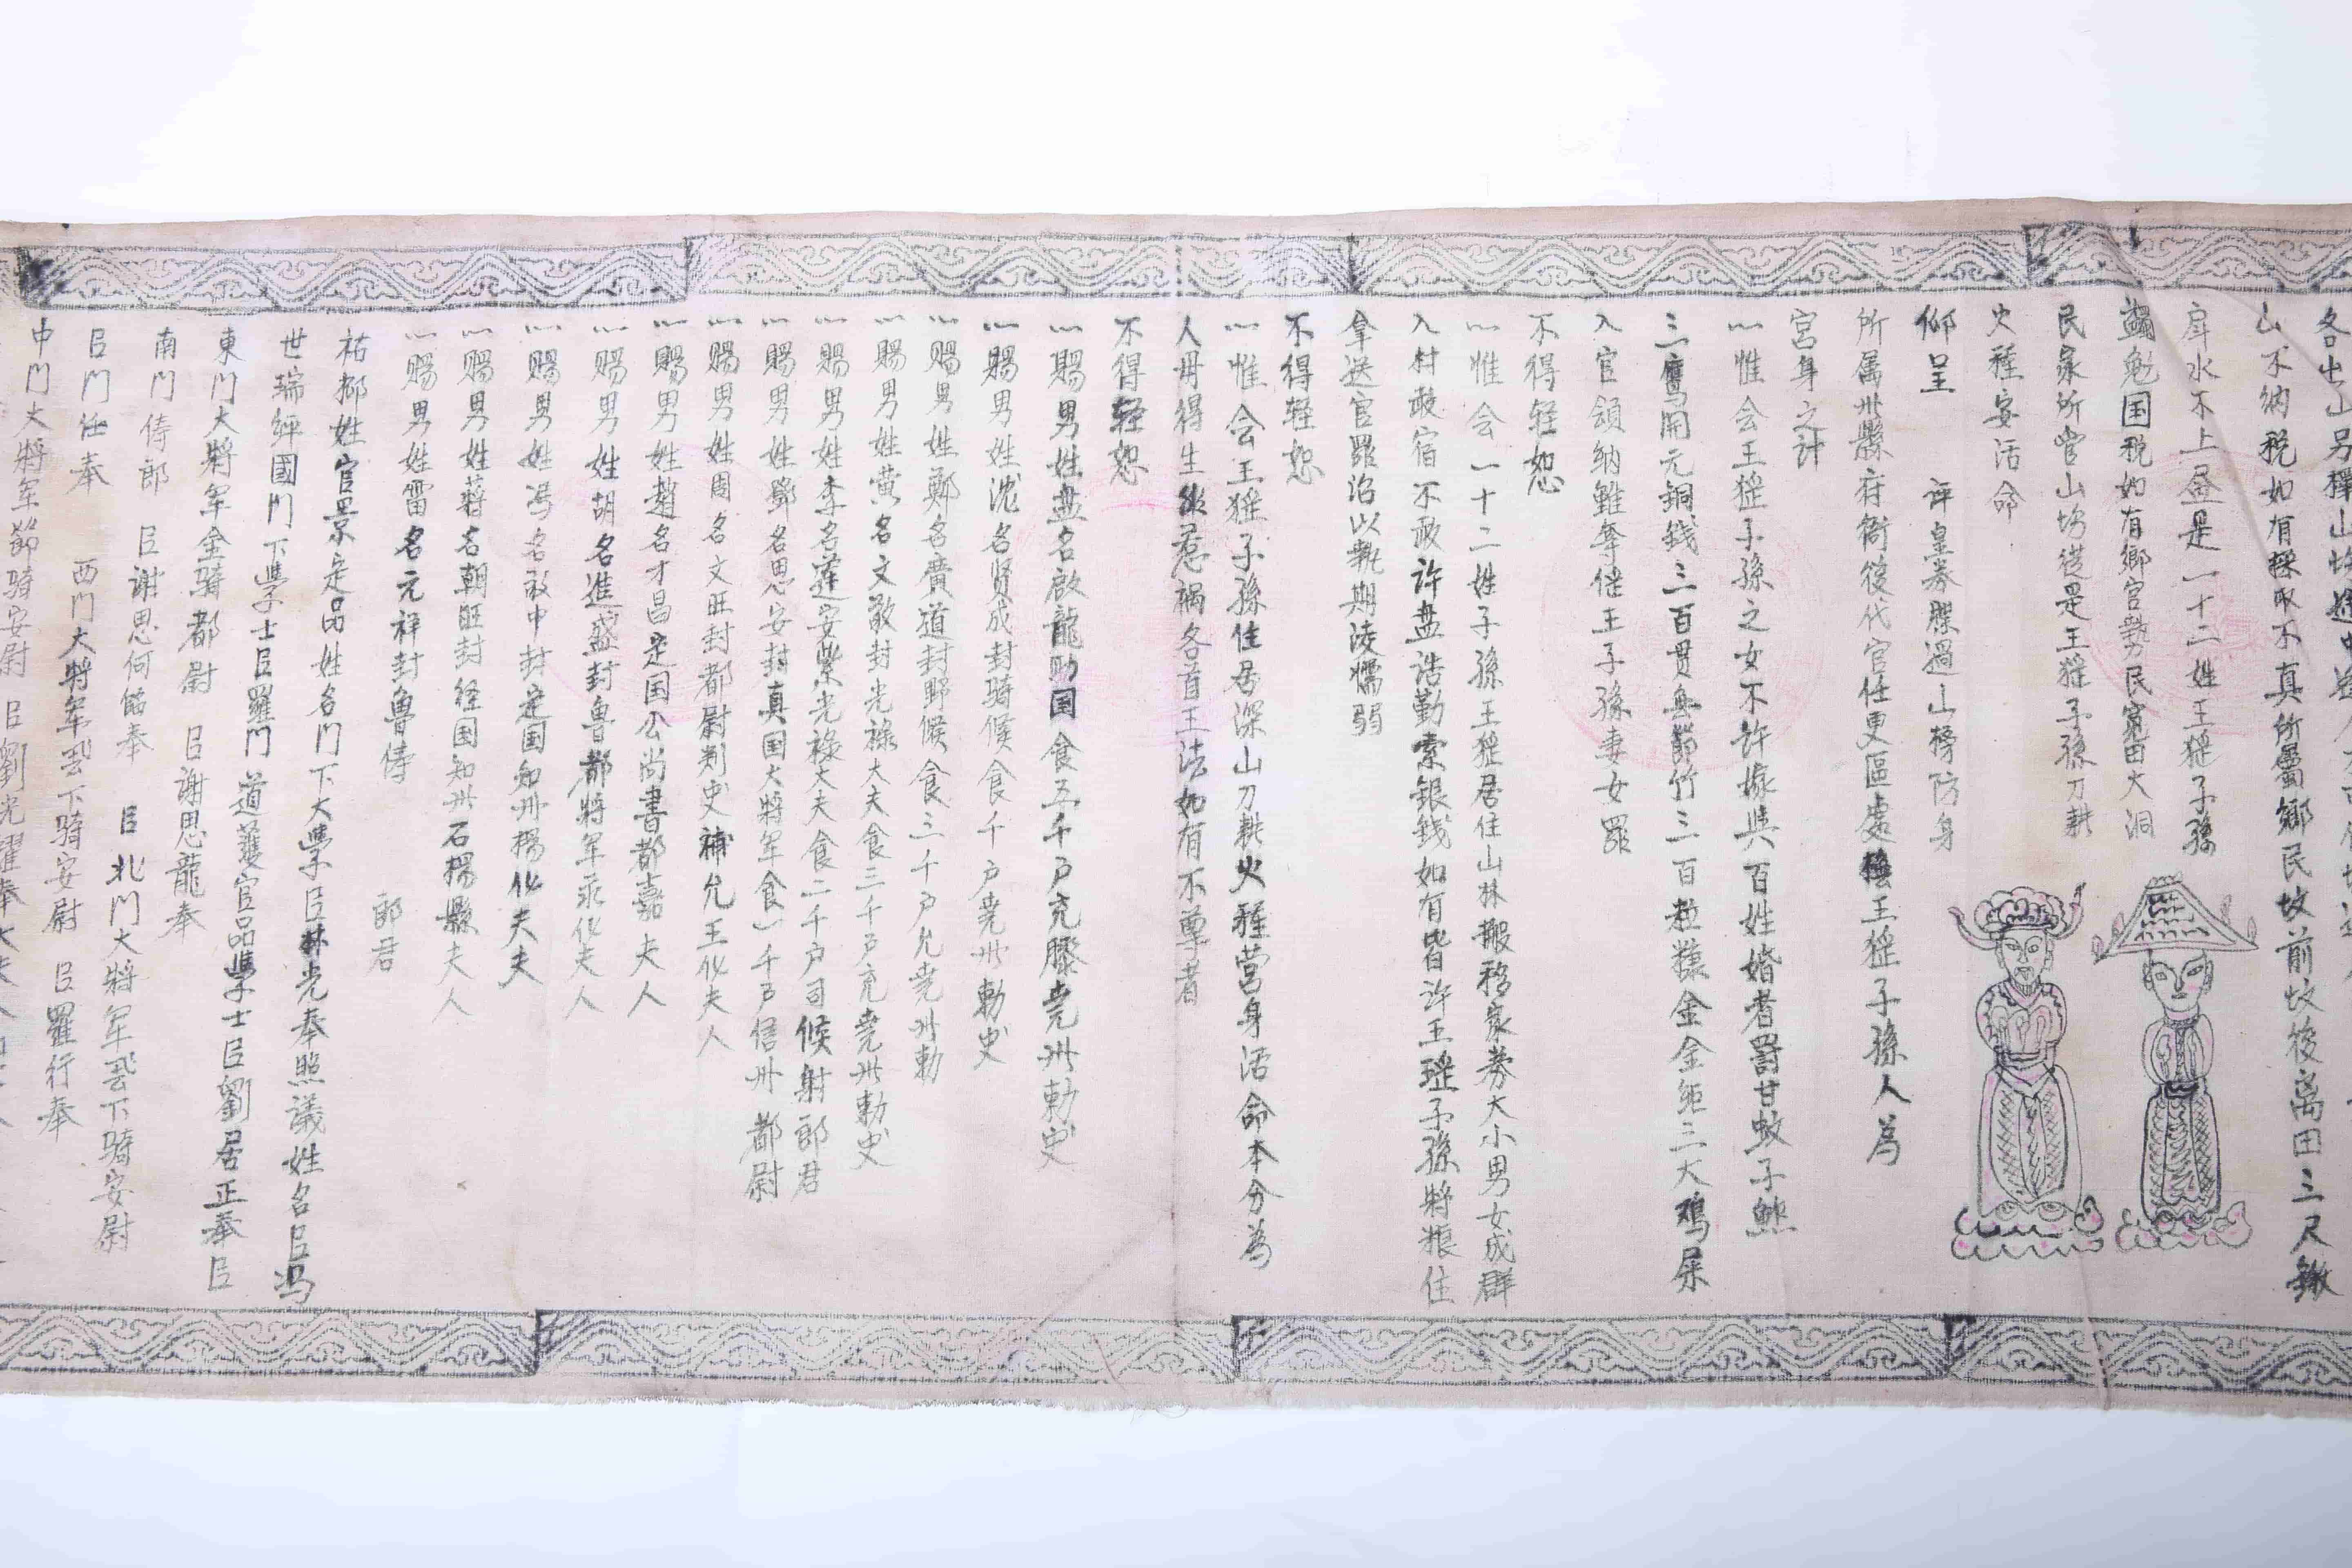 各出山另擇山
山不納稅如有採取不真所屬鄉民坟前坟後离田三尺鍬
戽水不上是一十二姓王猺子孫
蠲免国稅如有鄉官勢民寬田大洞
民家所管山場從是王猺子孫刀耕
火種安活命
仰呈 評皇券牒過山榜防身
所属卅縣府衙後代官任更區處王猺子孫人為
宮身之計
一惟会王猺子孫之女不許嫁與百姓婚者罰甘蚊子鮓
三甕開元銅錢三百貫無節竹三百粒糠金金絙三大鸡屎
入官領納雖奪律王子孫妻女罪
不得轻恕
一惟会一十二姓子孫王猺居住山林搬移家券大小男女成群
入村敢宿不敢許盘诰勤索銀錢如有皆许王瑶子孫將粮住
拿送官羅治以執期淩懦弱
不得轻恕
一惟会王猺子孫住居深山刀耕火種营身活命本分為
人毋得生惹禍各首王法如有不尊者
不得轻恕
一赐男姓盘名啟龍助国食五千户充滕尭卅勅史
一赐男姓沈名贤成封骑候食千户尭卅勅史
一赐男姓鄭名廣道封野候食三千户允尭卅勅
一赐男姓黄名文敬封光禄大夫食三千户充尭卅勅史
一赐男姓李名蓮安紫光祿大夫食二千户司候射郎君
一赐男姓鄧名思安封真国大將军食一千户信卅都尉
一赐男姓周名文旺封都尉判史補允王化夫人
一赐男姓趙名才昌定国公尚書都嘉夫人
一赐男姓胡名進盛封魯都將军承化夫人
一赐男姓冯名敢中封定国知卅楊化夫夫
一赐男姓蒋名朝旺封经国知卅石楊縣夫人
一赐男姓雷名元祥封魯侍 郎君
祐揶姓官景定品姓名门下大學臣林光奉照議姓名臣冯
世瑞評國門下學士臣羅门 道護官品學士臣劉居正奉臣
東门大將军金骑都尉 臣謝思龍奉
南门侍郎 臣謝思何館奉 臣北门大將军丕下骑安尉
臣门任奉 西门大將军丕下骑安尉 臣羅行奉
中门大將军節骑安尉 臣劉光耀奉大夫人